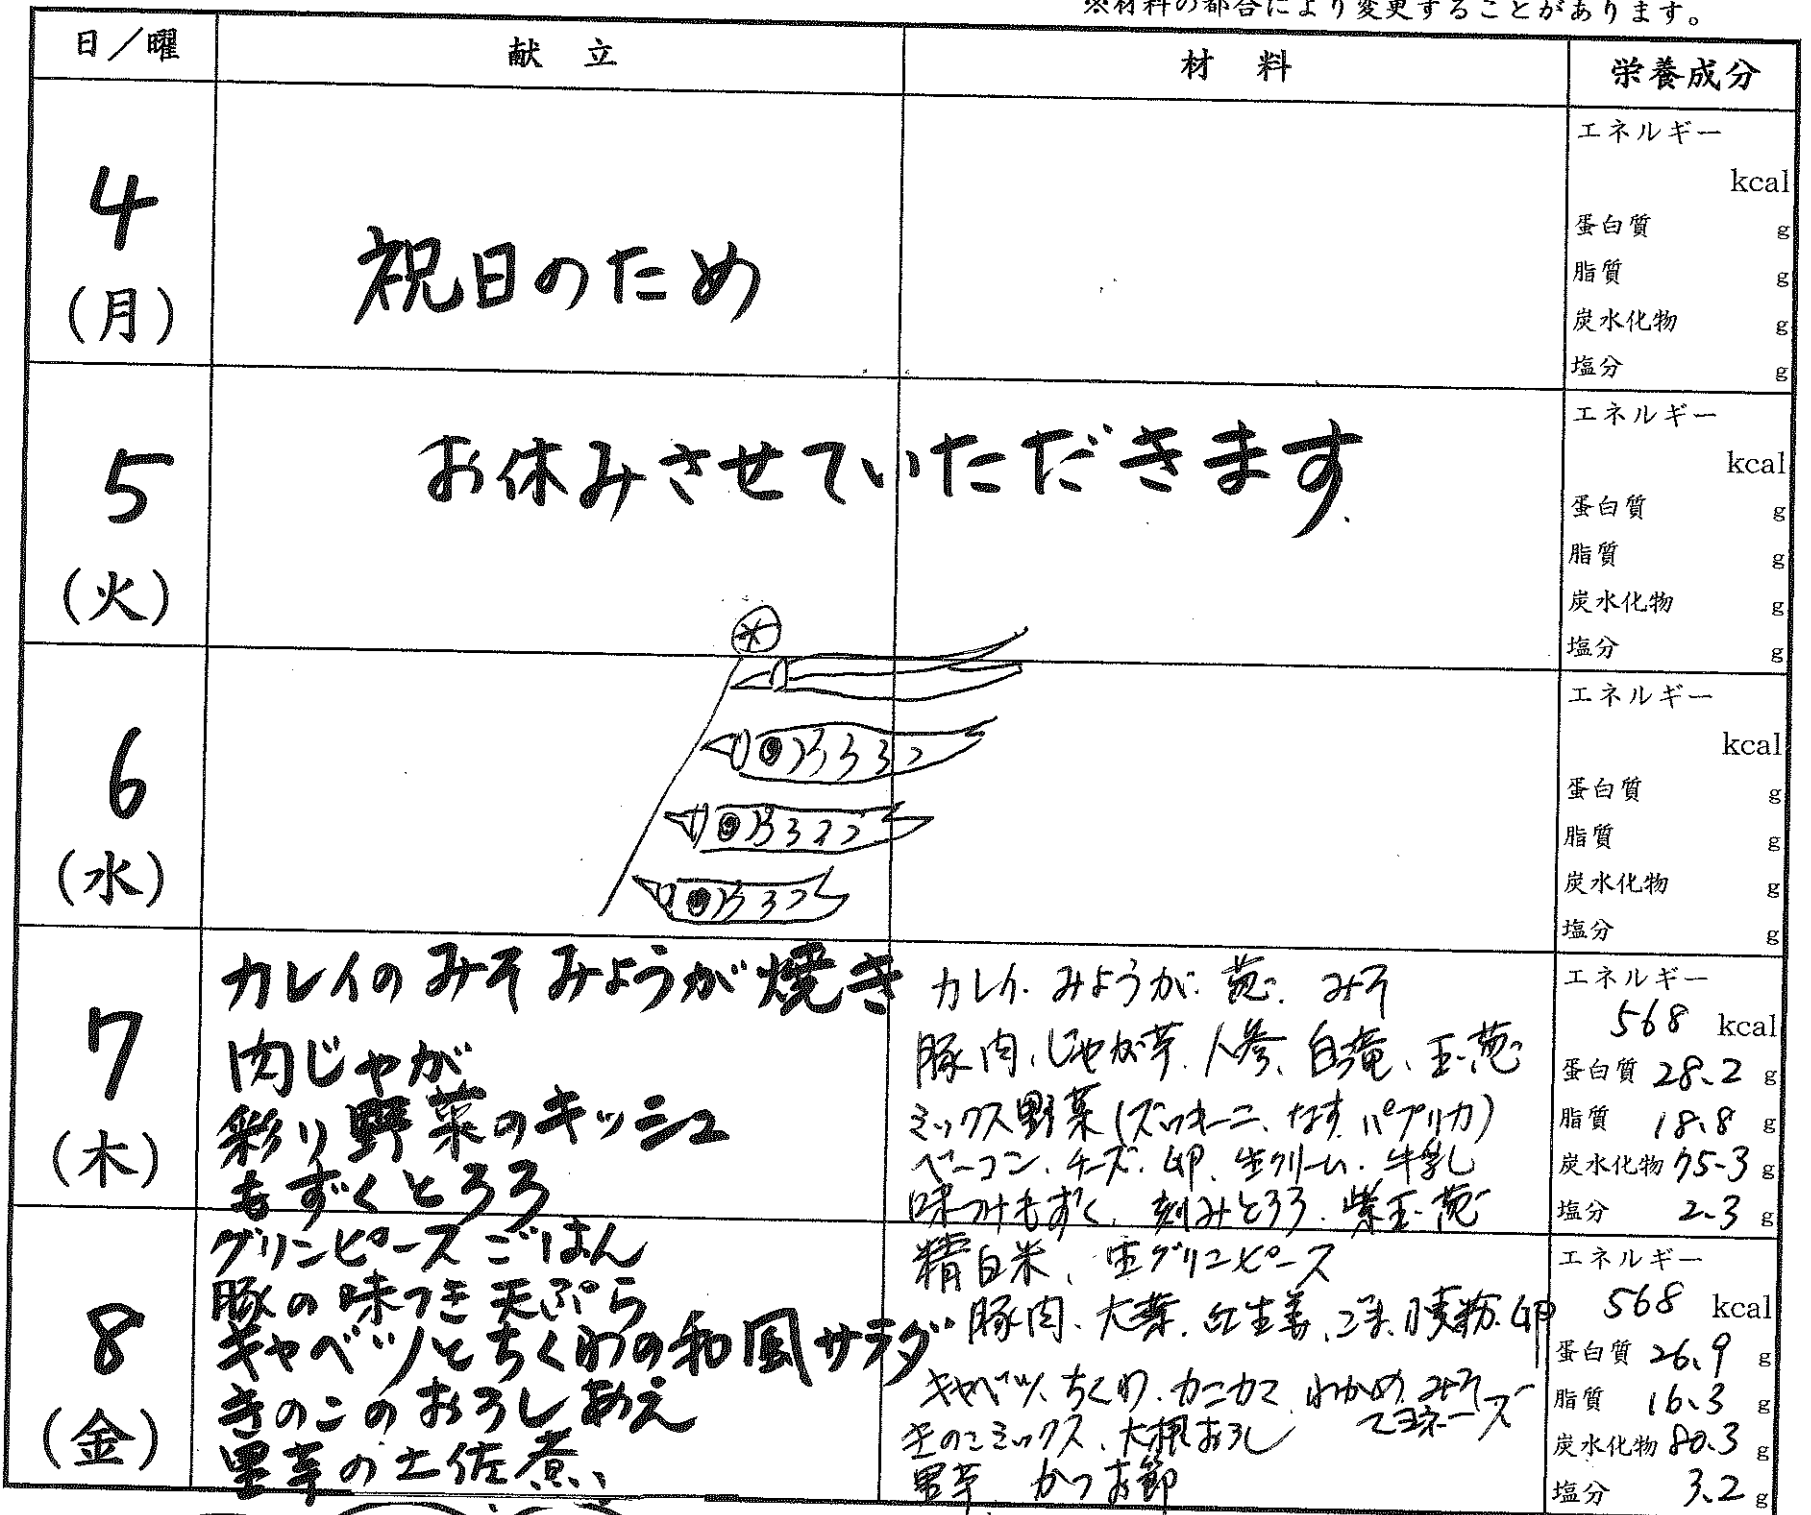 ※材料の都合により変更することがあります。
日／曜 献立 材料 栄養成分
4
(月)
祝日のため
エネルギー
kcal
蛋白質 g
脂質 g
炭水化物 g
塩分 g
5
(火)
お休みさせていただきます
エネルギー
kcal
蛋白質 g
脂質 g
炭水化物 g
塩分 g
6
(水)
エネルギー
kcal
蛋白質 g
脂質 g
炭水化物 g
塩分 g
7
(木)
カレイのみそみょうが焼き
肉じゃが
彩り野菜のキッシュ
もずくとろろ
カレイ、みょうが、葱、みそ
豚肉、じゃが芋、人参、白滝、玉葱
ミックス野菜(ズッキーニ、なす、パプリカ)
ベーコン、チーズ、卵、生クリーム、牛乳
味つけもずく、刻みとろろ、紫玉葱
エネルギー
568 kcal
蛋白質 28.2 g
脂質 18.8 g
炭水化物 75.3 g
塩分 2.3 g
8
(金)
グリンピースごはん
豚の味つき天ぷら
キャベツとちくわの和風サラダ
きのこのおろしあえ
里芋の土佐煮
精白米、生グリンピース
豚肉、大葉、紅生姜、ごま、小麦粉、卵
キャベツ、ちくわ、カニカマ、わかめ、みそ
マヨネーズ
きのこミックス、大根おろし
里芋 かつお節
エネルギー
568 kcal
蛋白質 26.9 g
脂質 16.3 g
炭水化物 80.3 g
塩分 3.2 g